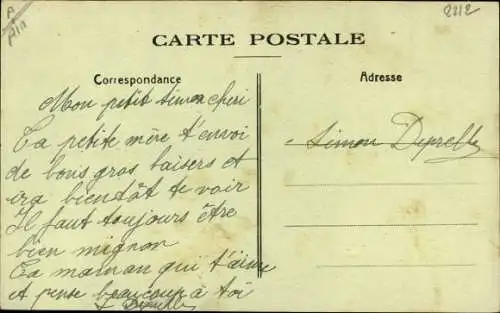 2212
CARTE POSTALE
Correspondance
Adresse
Mon petit Simon cheri
Ta petite mère t'envoi
de bons gros baisers et
ira bientôt te voir
Il faut toujours être
bien mignon
Ta maman qui t'aime
et pense beaucoup à toi
Simon